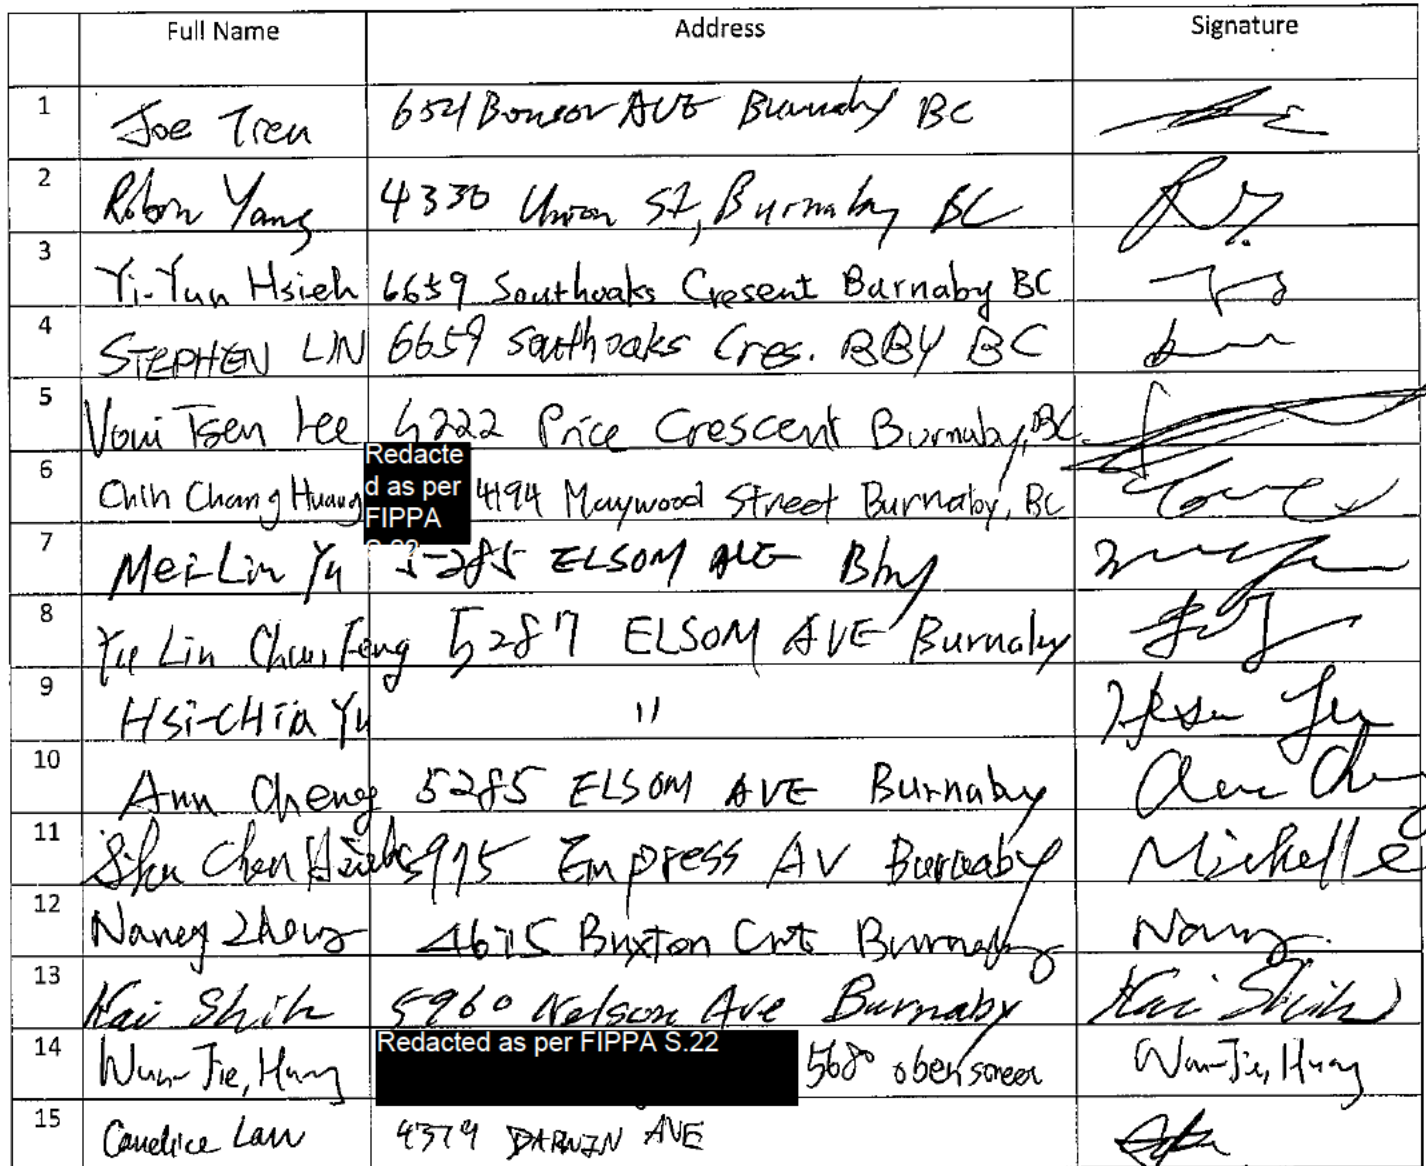 Full Name Address Signature
1 Joe Tren 6521 Bonsor AVE Burnaby BC
2 Robin Yang 4330 Union St, Burnaby BC
3 Yi-Yun Hsieh 6659 Southoaks Cresent Burnaby BC
4 STEPHEN LIN 6659 southoaks Cres. BBY BC
5 Voui Tsen Lee 5222 Price Crescent Burnaby, BC.
6 Chin Chang Huang Redacte
d as per
FIPPA
S.22 4194 Maywood Street Burnaby, BC
7 Mei-Lin Yu 5285 ELSOM AVE Bby
8 Yu Lin Chun Feng 5287 ELSOM AVE Burnaby
9 Hsi-CHia Yu "
10 Ann Cheng 5285 ELSOM AVE Burnaby
11 Shu Chen Hsieh 5975 Empress AV Burnaby Michelle
12 Nancy Zheng 4675 Buxton Crt Burnaby Nancy
13 Kai Shih 5960 Nelson Ave Burnaby Kai Shih
14 Wun-Jie, Huang Redacted as per FIPPA S.22 5680 Wun-Jie, Huang
15 Candice Law 4379 DARWIN AVE